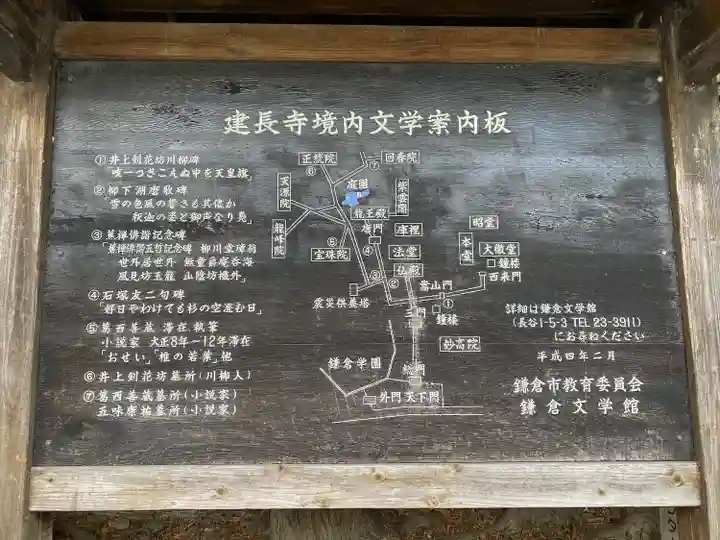 建長寺境内文学案内板
①井上剣花坊川柳碑
「咳一つきこえぬ中を天皇旗」
②柳下湖磨歌碑
「雪の色風の響きも其侭か
釈迦の姿と御声なり鳧」
③蕉禅俳諧記念碑
④石塚友二句碑
「好日やわけても杉の空澄む日」
⑤葛西善蔵 滞在執筆
小説家 大正8年ー12年滞在
「おせい」「椎の若葉」他
⑥井上剣花坊墓所(川柳人)
⑦葛西善蔵墓所(小説家)
五味康祐墓所(小説家)
正統院
⑥
⑦
回春院
天源院
庭園
紫雲閣
龍王殿
龍峰院
唐門
庫裡
昭堂
⑤
宝珠院
④
法堂
本堂
大徹堂
鐘楼
仏殿
西来門
③
②
嵩山門
①
震災供養塔
鐘楼
妙高院
鎌倉学園
総門
外門
天下門
詳細は鎌倉文学館
(長谷1-5-3 TEL 23-3911)
にお尋ねください
平成四年二月
鎌倉市教育委員会
鎌倉文学館